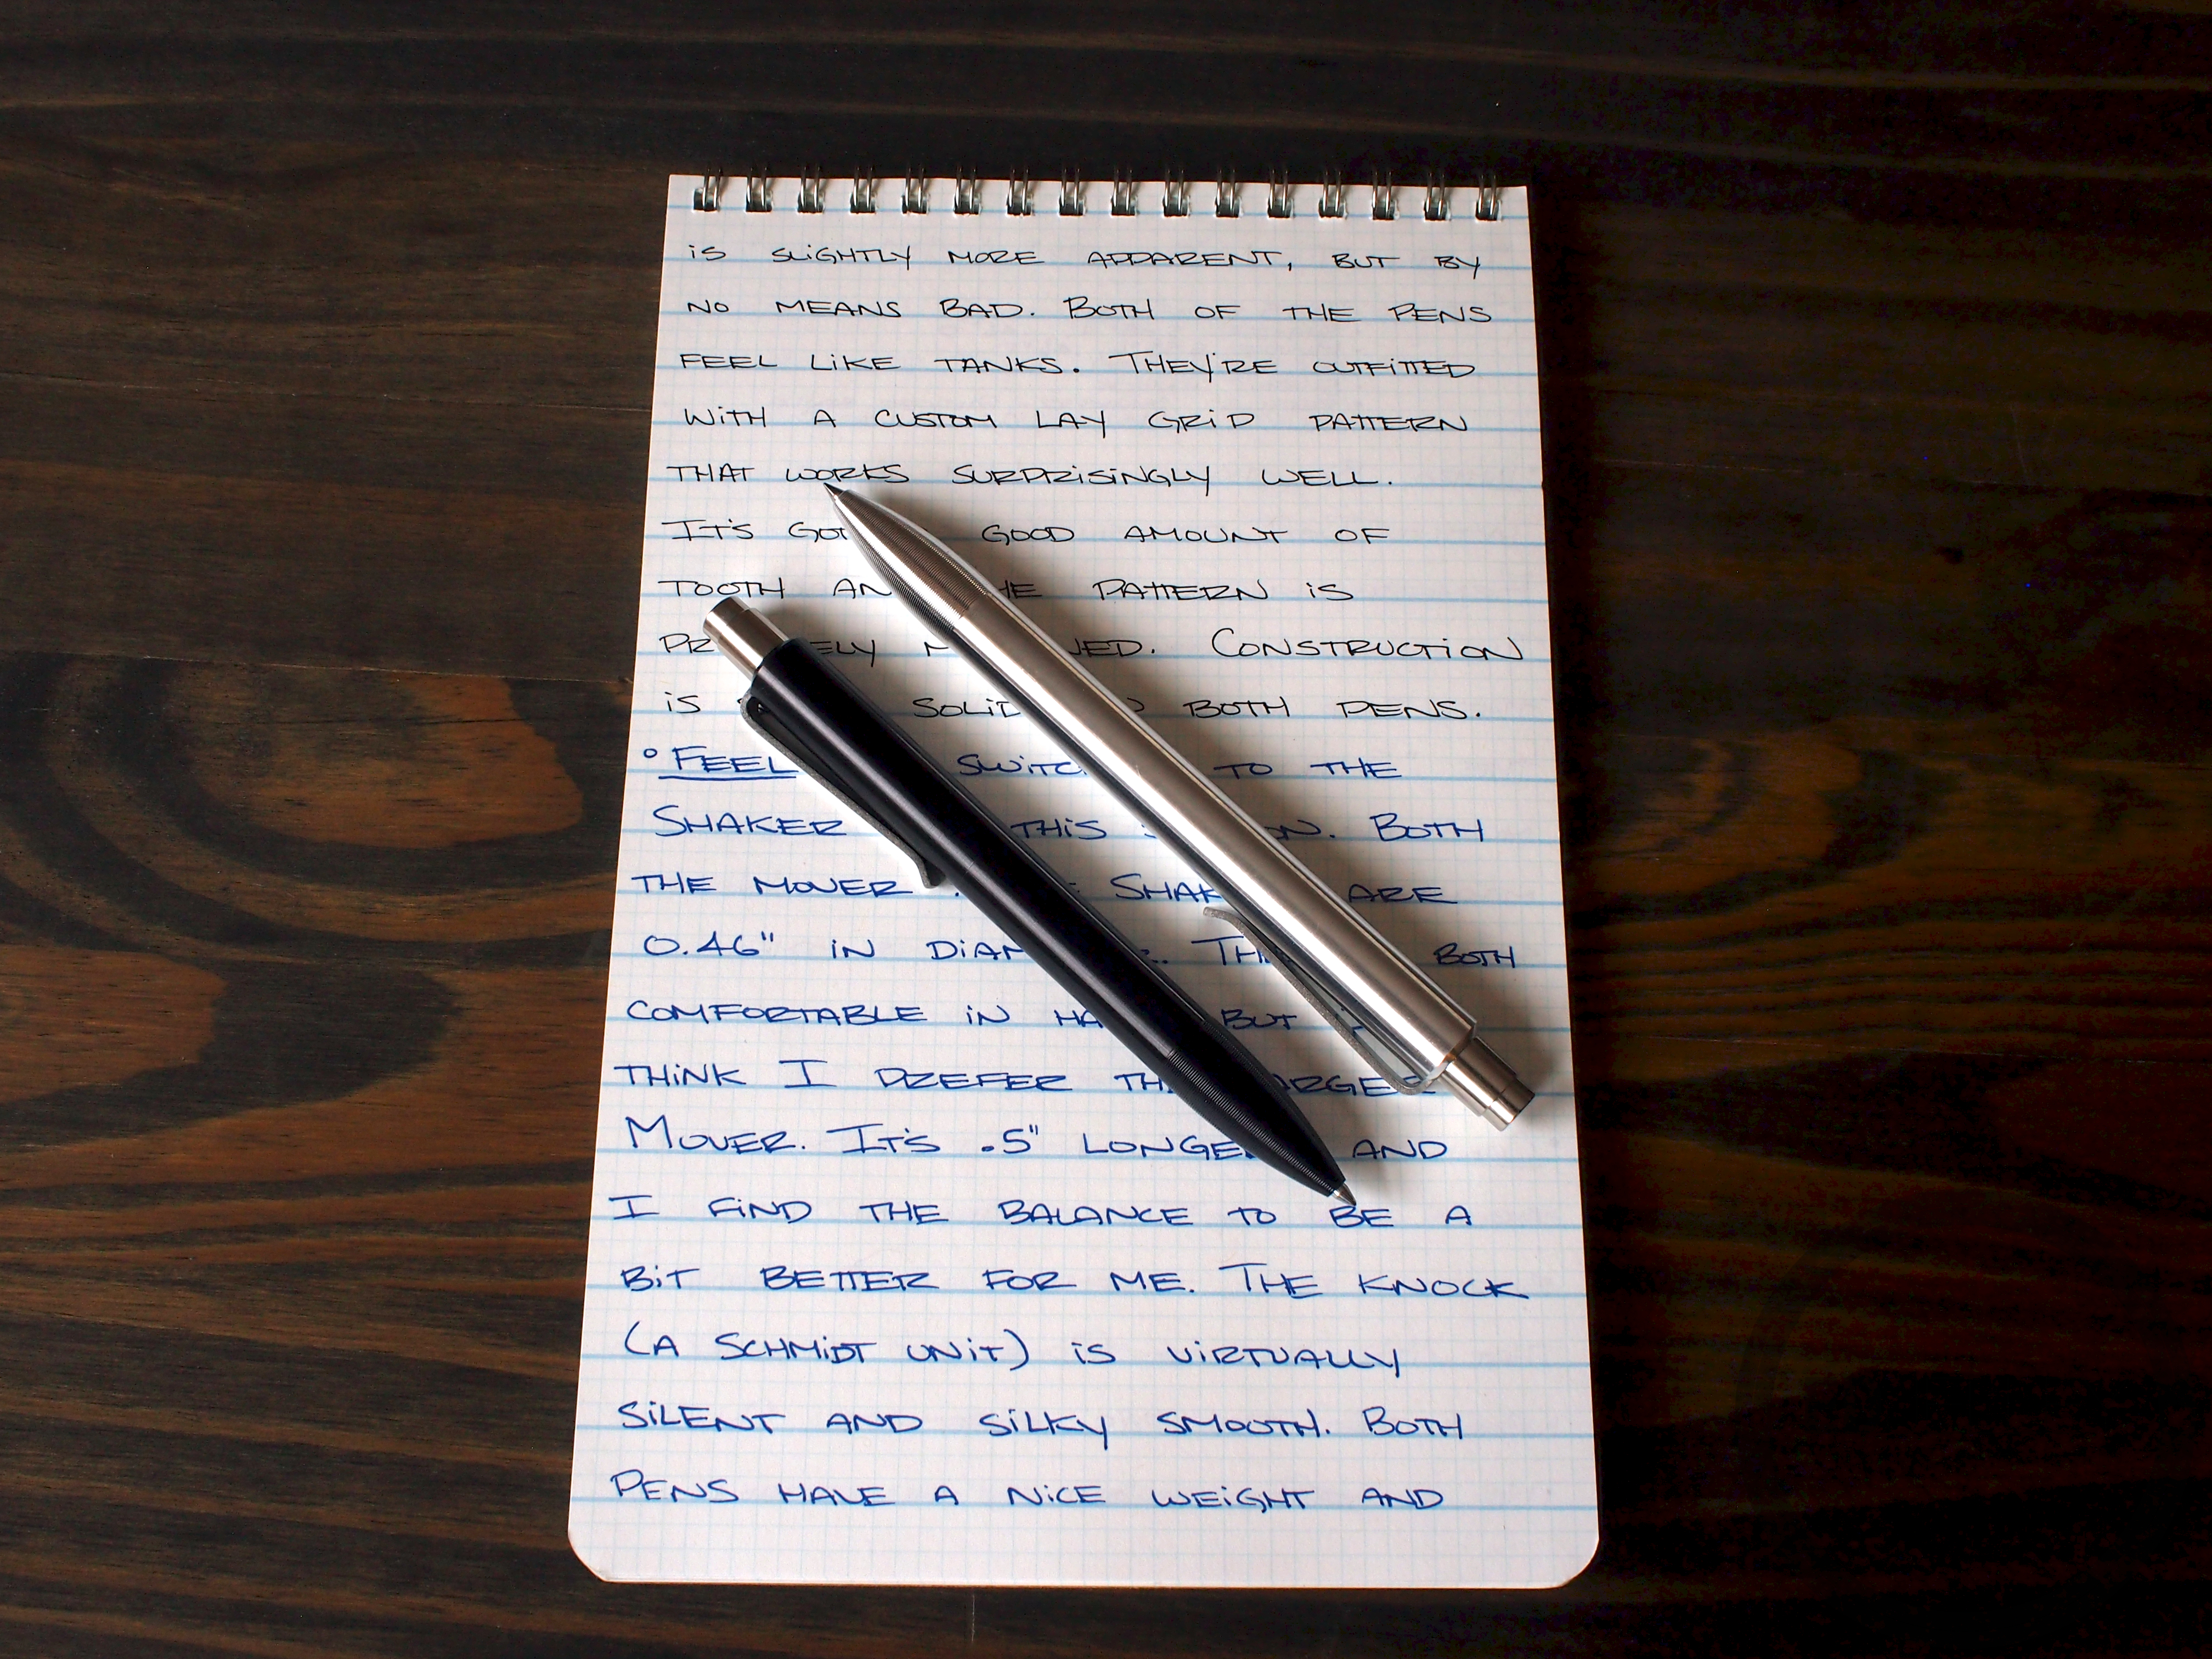 is SLiGHTLY MORE APPARENT, BUT BY
NO MEANS BAD. BOTH OF THE PENS
FEEL LiKE TANKS. THEY'RE OUTFiTTED
WiTH A CUSTOM LAY GRiD PATTERN
THAT WORKS SURPRiSiNGLY WELL.
IT'S GOT GOOD AMOUNT OF
TOOTH PATTERN iS
CONSTRUCTiON
iS SOLiD BOTH PENS.
° FEEL TO THE
SHAKER THiS BOTH
THE MOVER ARE
0.46" iN BOTH
COMFORTABLE iN BUT
THiNK I PREFER
MOVER. IT'S .5" LONGER AND
I FiND THE BALANCE TO BE A
BiT BETTER FOR ME. THE KNOCK
(A SCHMiDT UNiT) iS ViRTUALLY
SiLENT AND SiLKY SMOOTH. BOTH
PENS HAVE A NiCE WEiGHT AND